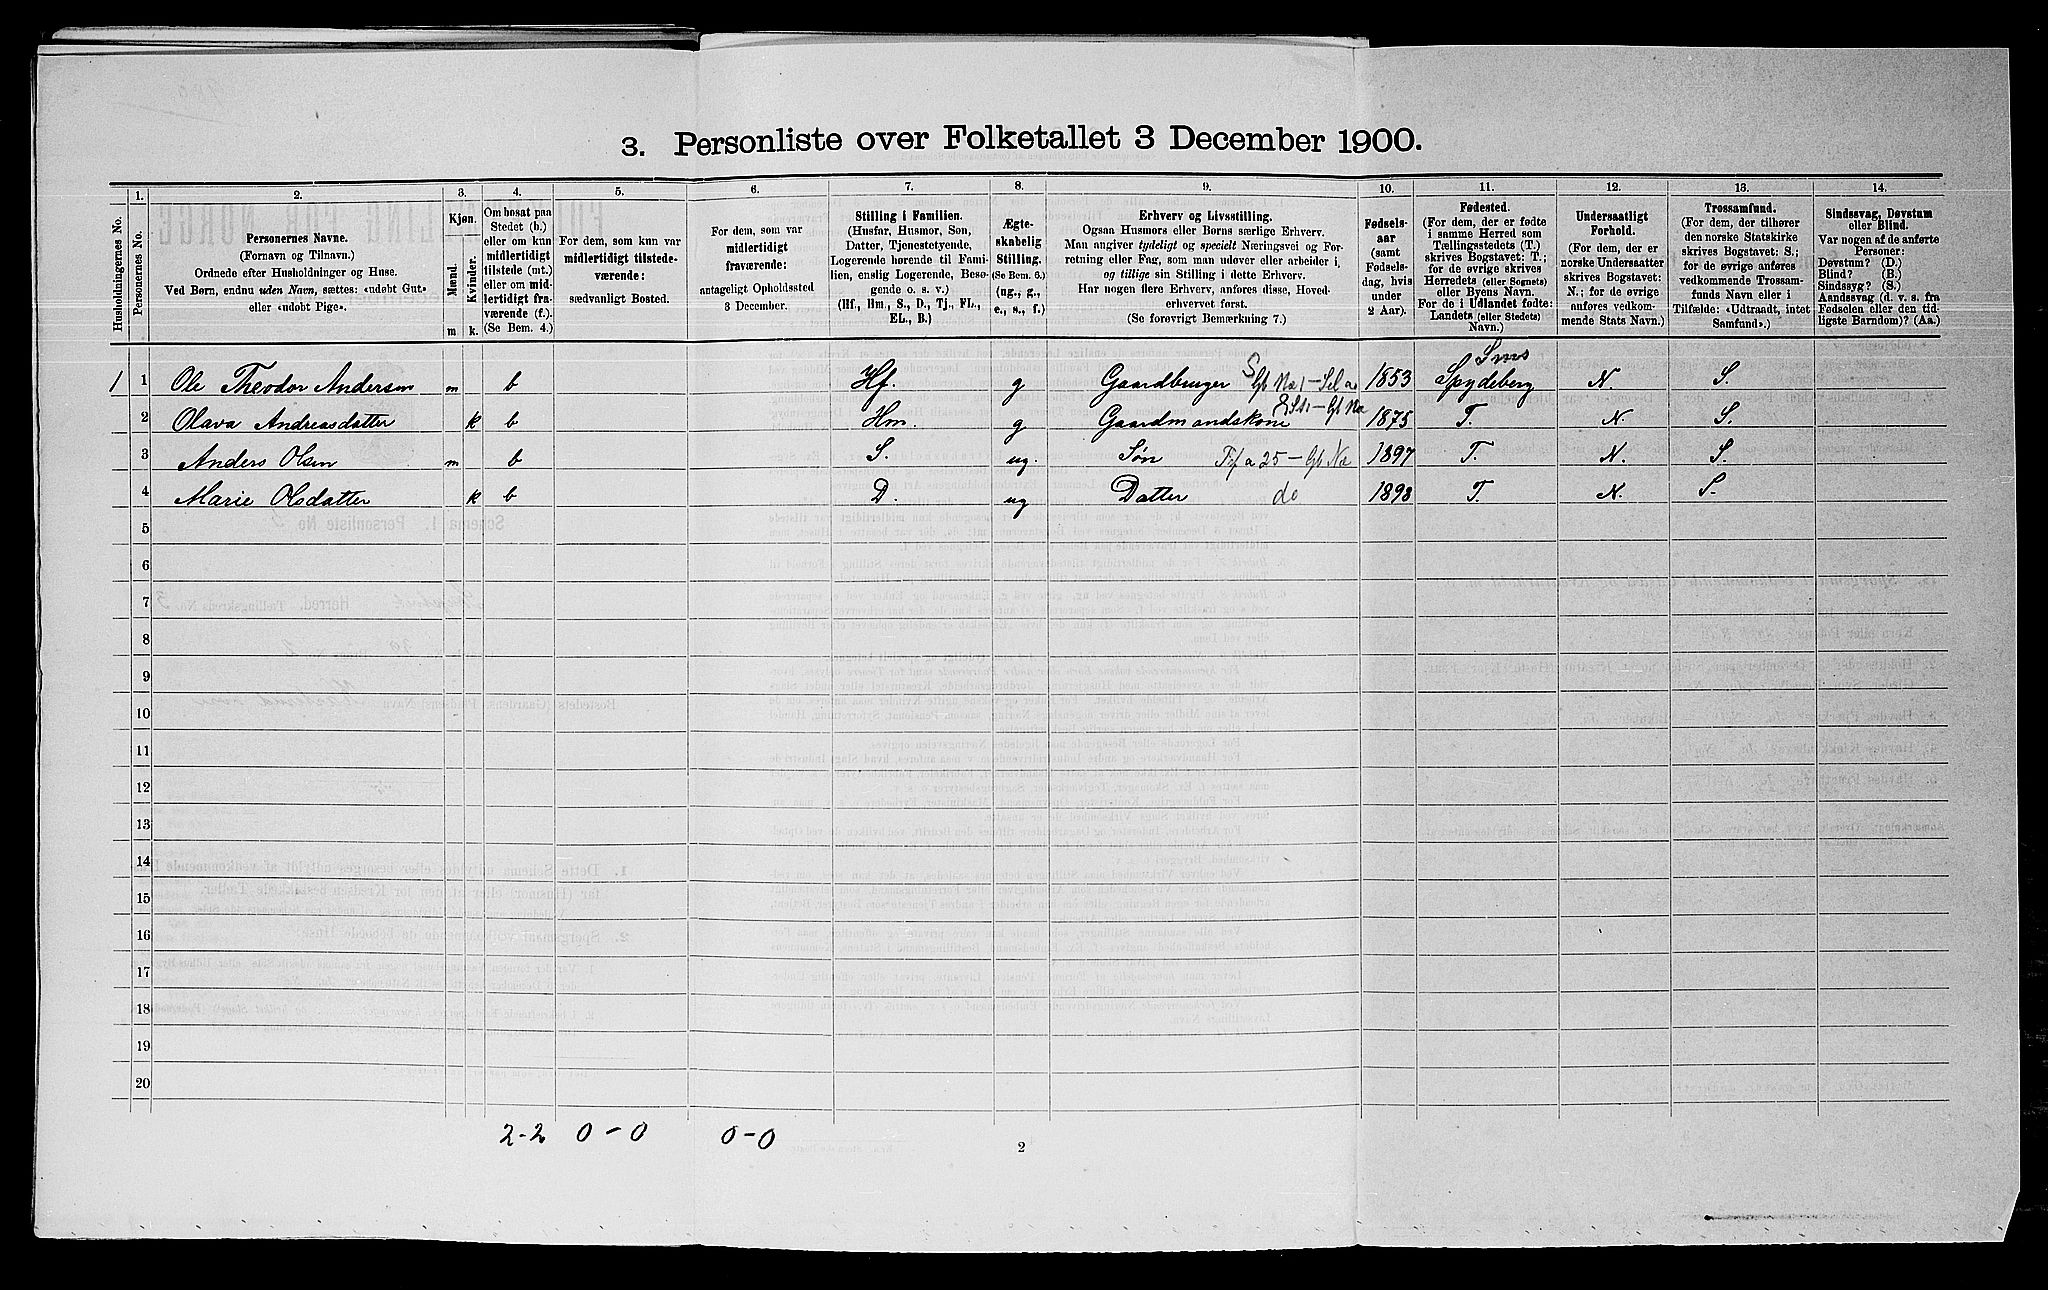 3. Personliste over Folketallet 3 December 1900.
1. 2. 3. 4. 5. 6. 7. 8. 9. 10. 11. 12. 13. 14.
Husholdningernes No.
Personernes No.
Personernes Navne.
(Fornavn og Tilnavn.)
Ordnede efter Husholdninger og Huse.
Ved Børn, endnu uden Navn, sættes: «udøbt Gut»
eller «udøbt Pige».
Kjøn.
Mænd.
Kvinder.
m k.
Om bosat paa
Stedet (b.)
eller om kun
midlertidigt
tilstede (mt.)
eller om mid-
lertidigt fra-
værende (f.).
(Se Bem. 4.)
For dem, som kun var
midlertidigt tilstede-
værende:
sædvanligt Bosted.
For dem, som var
midlertidigt
fraværende:
antageligt Opholdssted
3 December.
Stilling i Familien.
(Husfar, Husmor, Søn,
Datter, Tjenestetyende,
Logerende hørende til Fami-
lien, enslig Logerende, Besø-
gende o. s. v.)
(Hf., Hm., S., D., Tj., FL.,
EL., B.)
Ægte-
skabelig
Stilling.
(Se Bem. 6.)
(ug., g.,
e., s., f.)
Erhverv og Livsstilling.
Ogsaa Husmors eller Børns særlige Erhverv.
Man angiver tydeligt og specielt Næringsvei og For-
retning eller Fag, som man udøver eller arbeider i,
og tillige sin Stilling i dette Erhverv.
Har nogen flere Erhverv, anføres disse, Hoved-
erhvervet først.
(Se forøvrigt Bemærkning 7.)
Fødsels-
aar
(samt
Fødsels-
dag, hvis
under
2 Aar).
Fødested.
(For dem, der er fødte
i samme Herred som
Tællingsstedets (T.)
skrives Bogstavet: T.;
for de øvrige skrives
Herredets (eller Sognets)
eller Byens Navn.
For de i Udlandet fødte:
Landets (eller Stedets)
Navn.)
Undersaatligt
Forhold.
(For dem, der er
norske Undersaatter
skrives Bogstavet:
N.; for de øvrige
anføres vedkom-
mende Stats Navn.)
Trossamfund.
(For dem, der tilhører
den norske Statskirke
skrives Bogstavet: S.;
for de øvrige anføres
vedkommende Trossam-
funds Navn eller i
Tilfælde: «Udtraadt, intet
Samfund».)
Sindssvag, Døvstum
eller Blind.
Var nogen af de anførte
Personer:
Døvstum? (D.)
Blind? (B.)
Sindssyg? (S.)
Aandssvag (d. v. s. fra
Fødselen eller den tid-
ligste Barndom)? (Aa.)
Sms
1 1 Ole Theodor Andersen m b Hf. g Gaardbruger 1853 Spydeberg N. S.
2 Olava Andreasdatter k b Hm. g Gaardmandskone 1875 T. N. S.
3 Anders Olsen m b S. ug. Søn 1897 T. N. S.
4 Marie Olsdatter k b D. ug Datter do 1898 T. N. S.
5
6
7
8
9
10
11
12
13
14
15
16
17
18
19
20
2-2 0-0 0-0
2